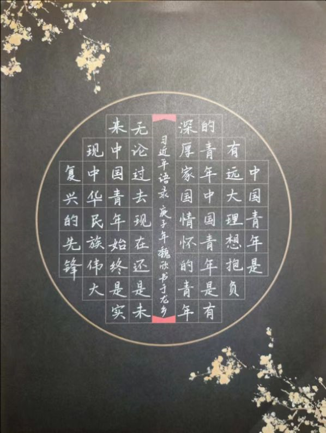 中国青年是
有远大理想抱负
的青年中国青年是有
深厚家国情怀的青年
无论过去现在还是未
来中国青年始终是实
现中华民族伟大
复兴的先锋
习近平语录 庚子年魏欣书于龙乡